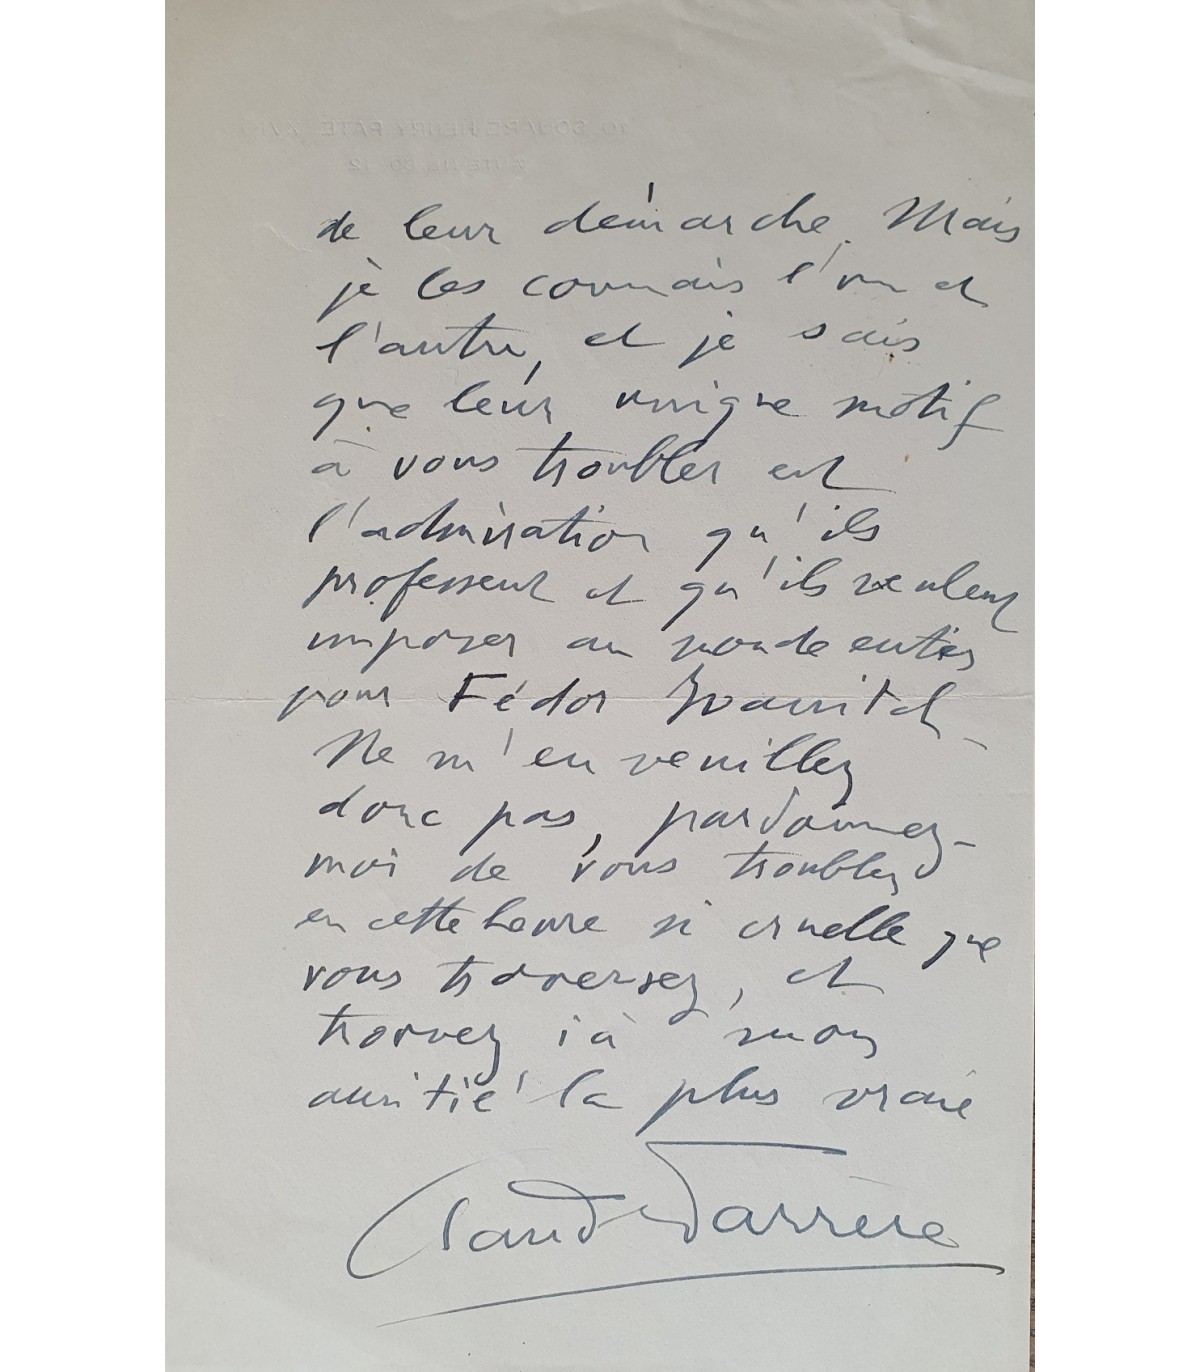 10, SQUARE HENRY PATÉ XVI
de leur démarche. Mais
je les connais l'un et
l'autre, et je sais
que leur unique motif
à vous troubler est
l'admiration qu'ils
professent et qu'ils veulent
imposer au monde entier
pour Fédor Ivanitch_
Ne m'en veuillez
donc pas, pardonnez-
moi de vous troubler
en cette heure si cruelle que
vous traversez, et
trouvez ià mon
amitié la plus vraie
Claude Farrère